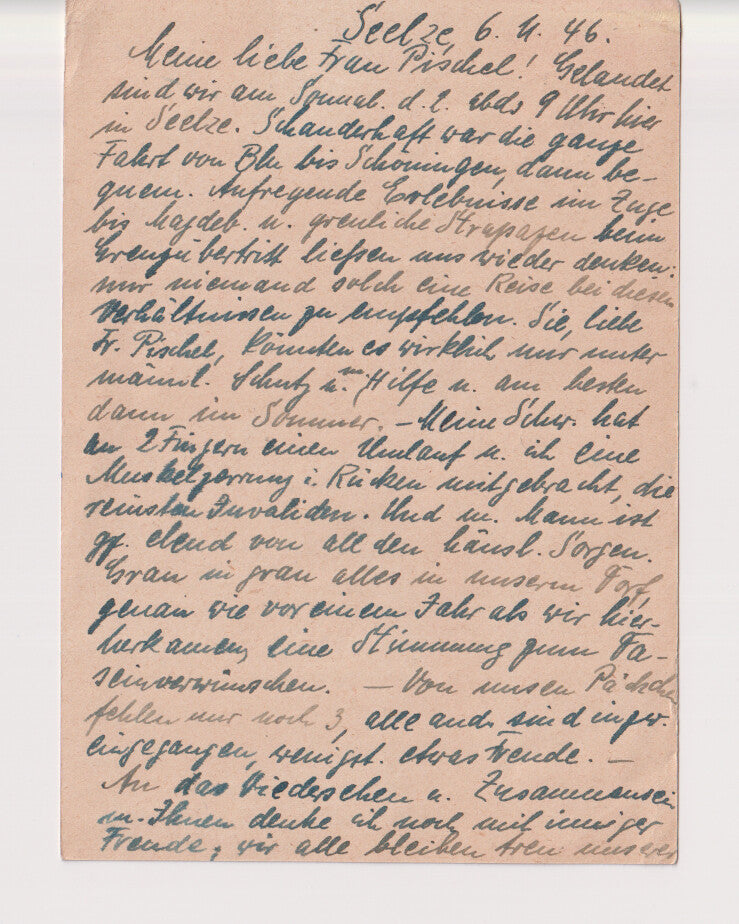 Seelze, 6. 11. 46.
Meine liebe Frau Pischel! Gelandet
sind wir am Sonnab. d. 2. abds 9 Uhr hier
in Seelze. Schauderhaft war die ganze
Fahrt von Bln bis Schöningen, dann be-
quem. Aufregende Erlebnisse im Zuge
bis Magdeb. u. greuliche Strapazen beim
Grenzübertritt liessen uns wieder denken:
nur niemand solch eine Reise bei diesen
Verhältnissen zu empfehlen. Sie, liebe
Fr. Pischel, könnten es wirklich nur unter
männl. Schutz u. Hilfe u. am besten
dann im Sommer. – Meine Schw. hat
an 2 Fingern einen Umlauf u. ich eine
Muskelzerrung i. Rücken mitgebracht, die
reinsten Invaliden. Und m. Mann ist
elend von all den häusl. Sorgen.
Grau in grau alles in unserm Dorf,
genau wie vor einem Jahr als wir hier-
herkamen, eine Stimmung zum Da-
seinverwünschen. – Von unsern Päckchen
fehlen nur noch 3, alle and. sind inzw.
eingegangen, wenigst. etwas Freude. –
An das Wiedersehen u. Zusammensein
m. Ihnen denke ich noch mit inniger
Freude, wir alle bleiben treu unserer